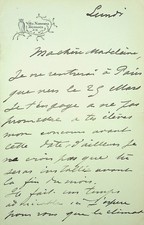 Lundi
Ma chère Madeleine,
Je ne rentrerai à Paris
que vers le 25 Mars
Je t'engage a ne pas
promettre à tes élèves
mon concours avant
cette date. D'ailleurs je
ne crois pas que tu
seras installée avant
la fin du mois.
Il fait un temps
et j'espère
pour vous que le climat